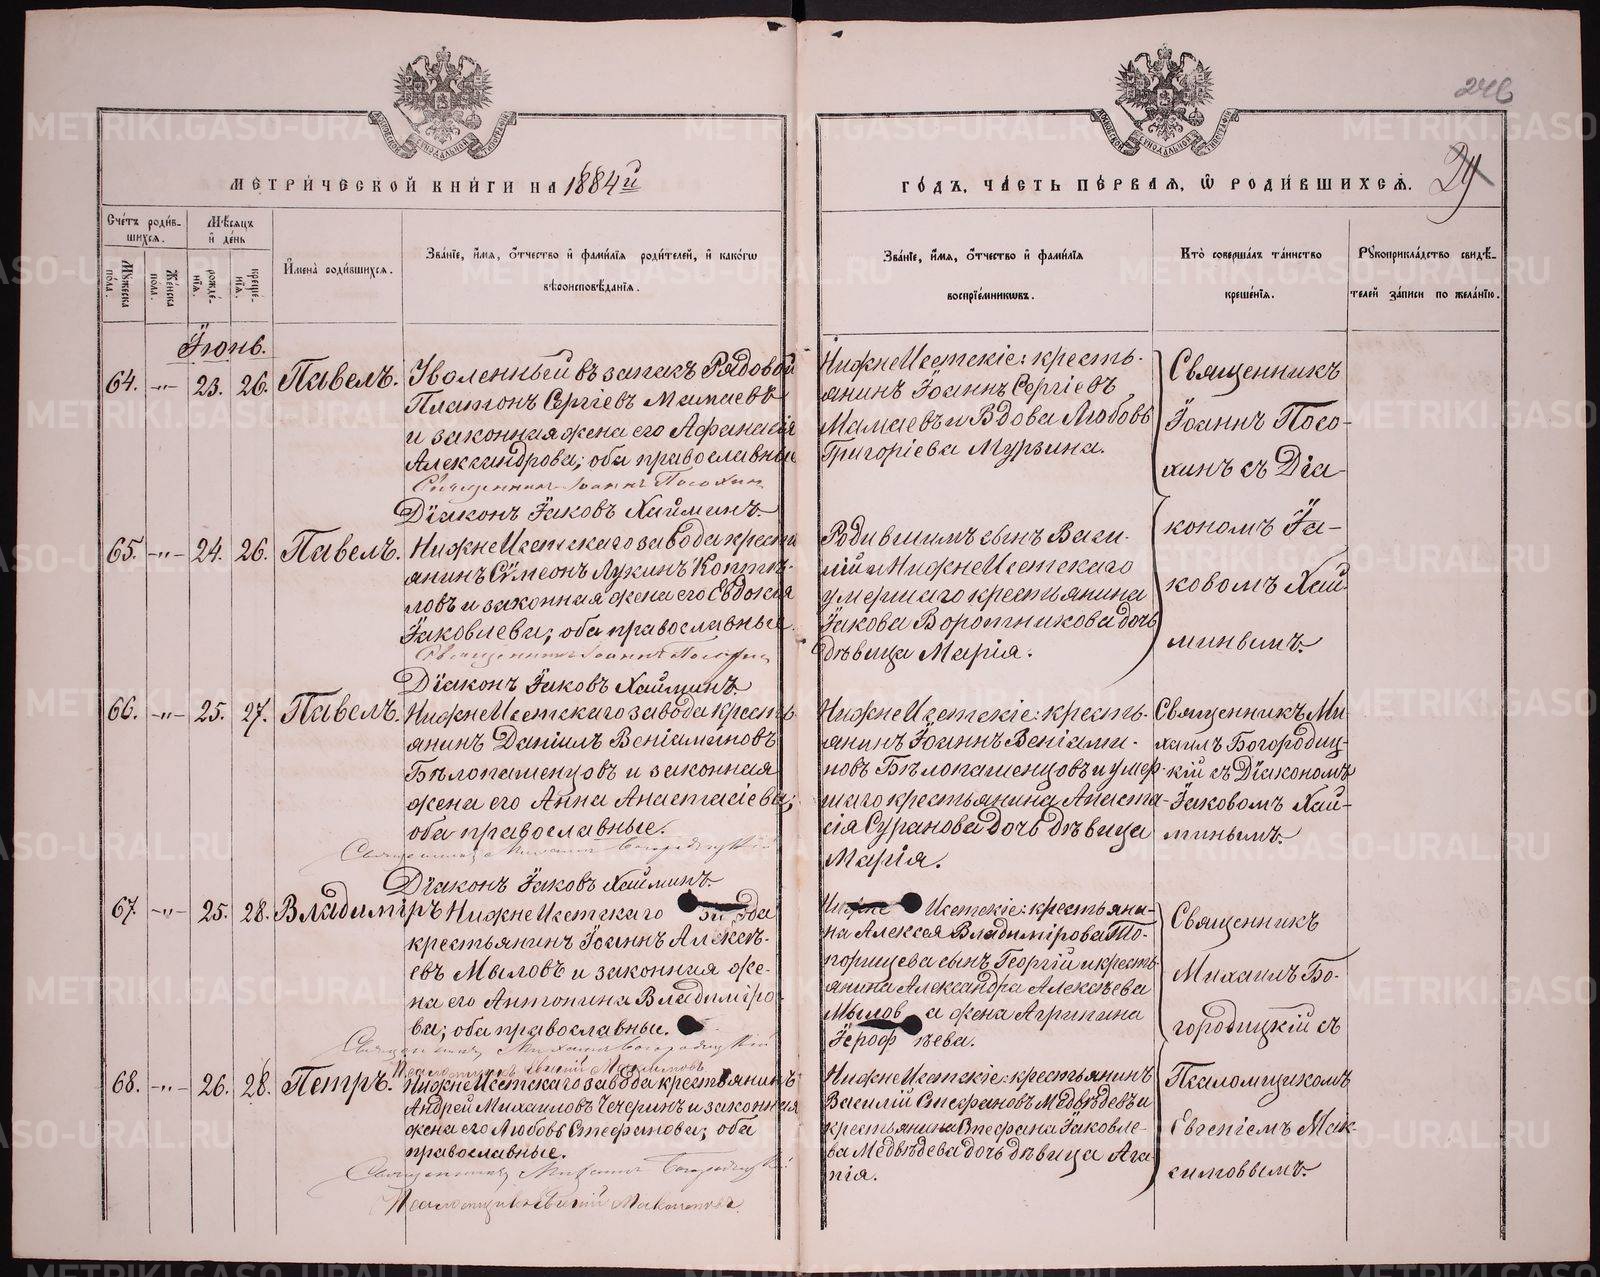 246
МЕТРИ́ЧЕСКОЙ КНИ́ГИ НА 1884й
ГО́ДЪ, ЧА́СТЬ ПЕ́РВАЯ, Ѡ РОДИ́ВШИХСѦ.
29
Сче́тъ роди́в-
шихсѧ.
Мѣ́сѧцъ
и҆ де́нь
Мꙋ́жеска
по́ла.
Же́нска
пола.
рожде́-
нїѧ.
креще́-
нїѧ.
И҆мена̀ роди́вшихсѧ.
Зва́нїе, и҆́мѧ, ѻ҆́тчество и҆ фамі́лїѧ роди́телей, и҆ како́гѡ
вѣроисповѣ́данїѧ.
Зва́нїе, и҆́мѧ, ѻ҆́тчество и҆ фамі́лїѧ
воспрїе́мникѡвъ.
Кто̀ соверша́лъ та́инство
креще́нїѧ.
Рꙋкоприкла́дство свидѣ́-
телей за́писи по жела́нїю.
Іюнь.
64. -"- 23. 26. Павелъ.
Уволенный въ запасъ Рядовой
Платонъ Сергіевъ Мамаевъ
и законная жена его Афанасія
Александрова; оба православные
Священникъ Іоаннъ Посохинъ
Діаконъ Іаковъ Хайминъ.
НижнеИсетскіе: кресть-
янинъ Іоаннъ Сергіевъ
Мамаевъ и Вдова Любовь
Григоріева Мурзина.
Священникъ
Іоаннъ Посо-
хинъ съ Діа-
кономъ Іа-
ковомъ Хай-
минымъ.
65. -"- 24. 26. Павелъ.
НижнеИсетскаго завода кресть
янинъ Сѵмеонъ Лукинъ Копты-
ловъ и законная жена его Евдокія
Іаковлева; оба православные.
Священникъ Іоаннъ Посохин
Діаконъ Іаковъ Хайминъ.
Родившимъ сынъ Васи-
лій и НижнеИсетскаго
умершаго крестьянина
Іакова Воротникова дочь
дѣвица Марія.
66. -"- 25. 27. Павелъ.
НижнеИсетскаго завода кресть-
янинъ Даніилъ Веніаминовъ
Бѣлопашенцовъ и законная
жена его Анна Анастасіева;
оба православные.
Священникъ Михаилъ Богородицкій
Діаконъ Іаковъ Хайминъ.
НижнеИсетскіе: кресть-
янинъ Іоаннъ Веніами-
новъ Бѣлопашенцовъ и умер-
шаго крестьянина Анаста-
сія Суранова дочь дѣвица
Марія.
Священникъ Ми-
хаилъ Богородиц-
кій съ Діакономъ
Іаковомъ Хай-
минымъ.
67. -"- 25. 28. Владиміръ
НижнеИсетскаго завода
крестьянинъ Іоаннъ Алексѣ-
евъ Мыловъ и законная же-
на его Антонина Владиміро-
ва; оба православные.
Священникъ Михаилъ Богородицкій
Псаломщикъ Евгеній Максимовъ
Нижне Исетскіе: крестьяни-
на Алексея Владимірова То-
порищева сынъ Георгій и кресть-
янина Александра Алексѣева
Мылова жена Агрипина
Іерофѣева.
Священникъ
Михаилъ Бо-
городицкій съ
Псаломщикомъ
Евгеніемъ Мак-
симовымъ.
68. -"- 26. 28. Петръ.
НижнеИсетскаго завода крестьянинъ
Андрей Михаиловъ Чечеринъ и законная
жена его Любовь Стефанова; оба
православные.
Священникъ Михаилъ Богородицкій
Псаломщикъ Евгеній Максимовъ.
НижнеИсетскіе: крестьянинъ
Василій Стефановъ Медвѣдевъ и
крестьянина Стефана Іаковле-
ва Медвѣдева дочь дѣвица Ага-
пія.
METRIKI.GASO-URAL.RU